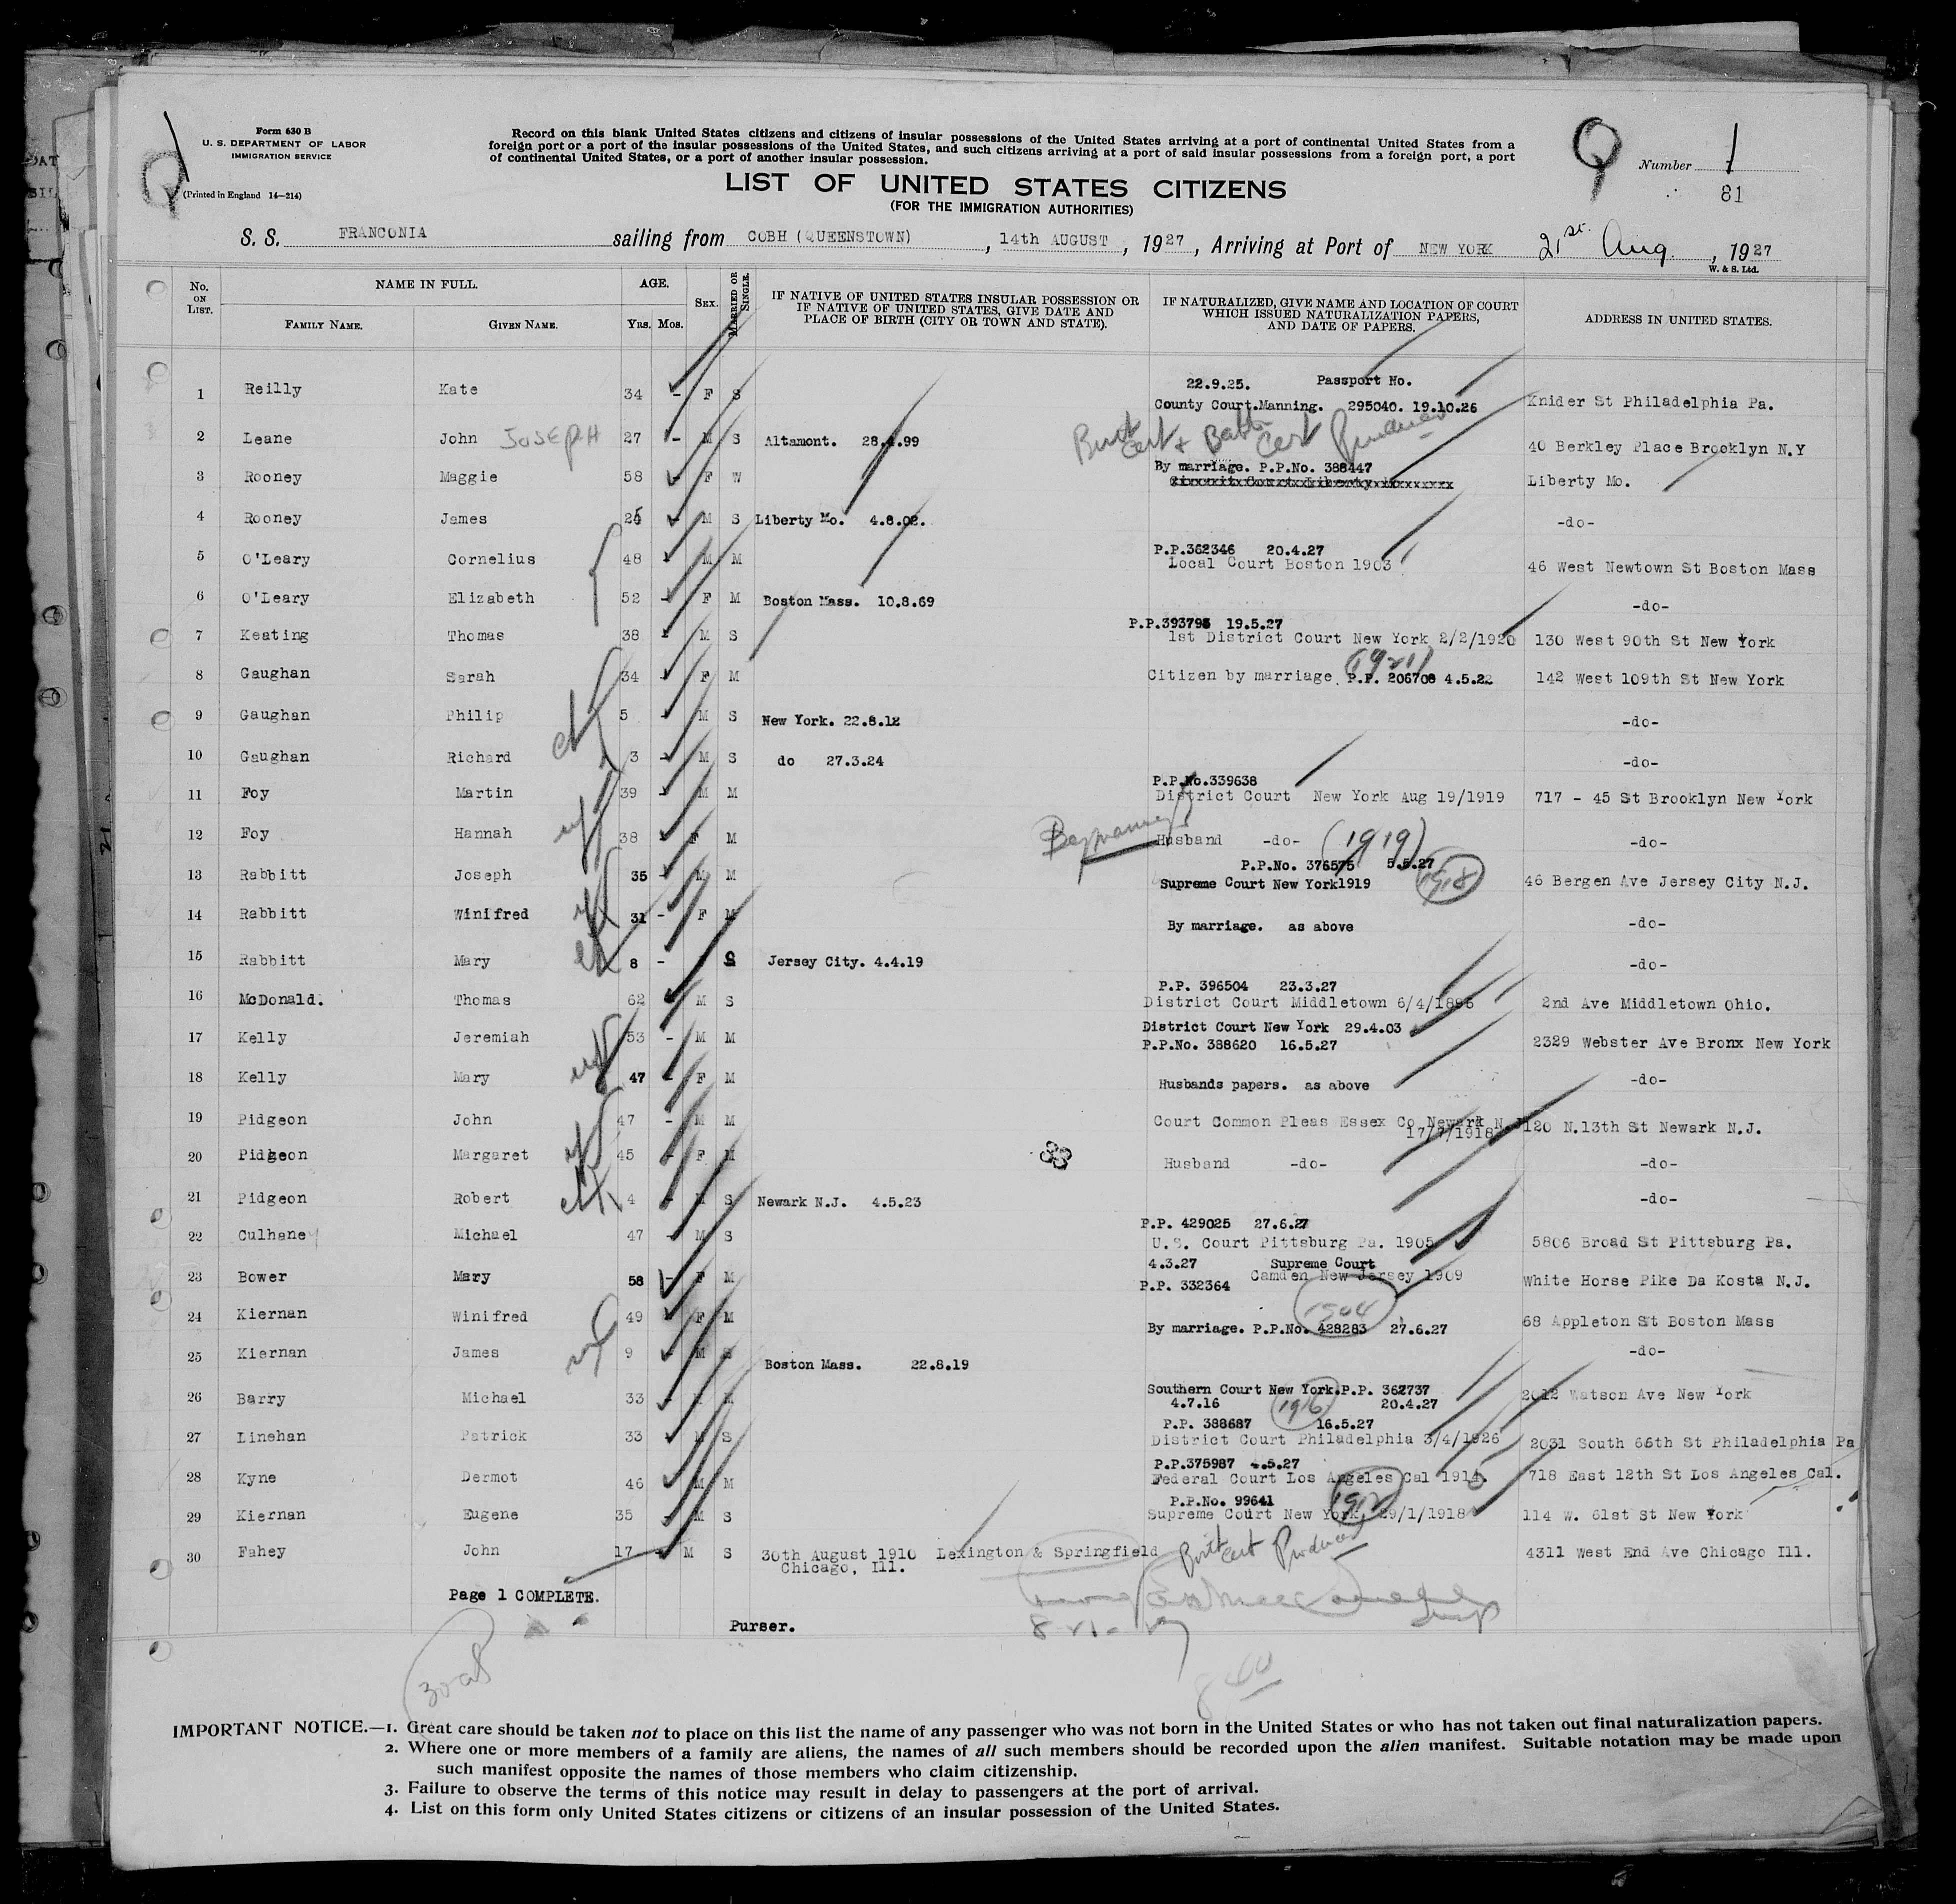 Form 630 B
U. S. DEPARTMENT OF LABOR
IMMIGRATION SERVICE
(Printed in England 14—214)
Record on this blank United States citizens and citizens of insular possessions of the United States arriving at a port of continental United States from a
foreign port or a port of the insular possessions of the United States, and such citizens arriving at a port of said insular possessions from a foreign port, a port
of continental United States, or a port of another insular possession.
Q
Number 1
81
LIST OF UNITED STATES CITIZENS
(FOR THE IMMIGRATION AUTHORITIES)
S. S. FRANCONIA sailing from COBH (QUEENSTOWN), 14th AUGUST, 1927, Arriving at Port of NEW YORK 21st. Aug., 1927
W. & S. Ltd.
No. ON LIST. NAME IN FULL. AGE. SEX. MARRIED OR SINGLE. IF NATIVE OF UNITED STATES INSULAR POSSESSION OR IF NATIVE OF UNITED STATES, GIVE DATE AND PLACE OF BIRTH (CITY OR TOWN AND STATE). IF NATURALIZED, GIVE NAME AND LOCATION OF COURT WHICH ISSUED NATURALIZATION PAPERS, AND DATE OF PAPERS. ADDRESS IN UNITED STATES.
FAMILY NAME. GIVEN NAME. YRS. MOS.
22.9.25. Passport No.
1 Reilly Kate 34 - F S County Court.Manning. 295040. 19.10.26 Knider St Philadelphia Pa.
2 Leane John JOSEPH 27 - M S Altamont. 28.4.99 40 Berkley Place Brooklyn N.Y
3 Rooney Maggie 58 - F W By marriage. P.P.No. 388447 Liberty Mo.
4 Rooney James 25 - M S Liberty Mo. 4.8.02. -do-
P.P.362346 20.4.27
5 O'Leary Cornelius 48 - M M Local Court Boston 1903 46 West Newtown St Boston Mass
6 O'Leary Elizabeth 52 - F M Boston Mass. 10.8.69 -do-
P.P.393795 19.5.27
7 Keating Thomas 38 - M S 1st District Court New York 2/2/1920 130 West 90th St New York
(1921)
8 Gaughan Sarah 34 - F M Citizen by marriage. P.P. 206708 4.5.22 142 West 109th St New York
9 Gaughan Philip 5 - M S New York. 22.8.12 -do-
10 Gaughan Richard 3 - M S do 27.3.24 -do-
P.P.No.339638
11 Foy Martin 39 - M M District Court New York Aug 19/1919 717 - 45 St Brooklyn New York
12 Foy Hannah 38 - F M Husband -do- (1919) -do-
P.P.No. 376575 5.5.27
13 Rabbitt Joseph 35 - M M Supreme Court New York1919 1918 46 Bergen Ave Jersey City N.J.
14 Rabbitt Winifred 31 - F M By marriage. as above -do-
15 Rabbitt Mary 8 - S Jersey City. 4.4.19 -do-
P.P. 396504 23.3.27
16 McDonald. Thomas 62 - M S District Court Middletown 6/4/1896 2nd Ave Middletown Ohio.
District Court New York 29.4.03
17 Kelly Jeremiah 53 - M M P.P.No. 388620 16.5.27 2329 Webster Ave Bronx New York
18 Kelly Mary 47 - F M Husbands papers. as above -do-
19 Pidgeon John 47 - M M Court Common Pleas Essex Co Newark N.J 120 N.13th St Newark N.J.
17/7/1918
20 Pidgeon Margaret 45 - F M Husband -do- -do-
21 Pidgeon Robert 4 - M S Newark N.J. 4.5.23 -do-
P.P. 429025 27.6.27
22 Culhane Michael 47 - M S U.S. Court Pittsburg Pa. 1905 5806 Broad St Pittsburg Pa.
4.3.27 Supreme Court
23 Bower Mary 58 - F M P.P. 332364 Camden New Jersey 1909 White Horse Pike Da Kosta N.J.
1904
24 Kiernan Winifred 49 - F M By marriage. P.P.No. 428283 27.6.27 68 Appleton St Boston Mass
25 Kiernan James 9 - M S Boston Mass. 22.8.19 -do-
Southern Court New York.P.P. 362737
26 Barry Michael 33 - M M 4.7.16 1916 20.4.27 2012 Watson Ave New York
P.P. 388687 16.5.27
27 Linehan Patrick 33 - M S District Court Philadelphia 3/4/1926 2031 South 66th St Philadelphia Pa
P.P.375987 4.5.27
28 Kyne Dermot 46 M M Federal Court Los Angeles Cal 1914. 718 East 12th St Los Angeles Cal.
P.P.No. 99641 1912
29 Kiernan Eugene 35 M S Supreme Court New York, 29/1/1918 114 W. 61st St New York
30 Fahey John 17 - M S 30th August 1910 Lexington & Springfield 4311 West End Ave Chicago Ill.
Chicago, Ill.
Page 1 COMPLETE.
Purser.
IMPORTANT NOTICE.—1. Great care should be taken not to place on this list the name of any passenger who was not born in the United States or who has not taken out final naturalization papers.
2. Where one or more members of a family are aliens, the names of all such members should be recorded upon the alien manifest. Suitable notation may be made upon
such manifest opposite the names of those members who claim citizenship.
3. Failure to observe the terms of this notice may result in delay to passengers at the port of arrival.
4. List on this form only United States citizens or citizens of an insular possession of the United States.